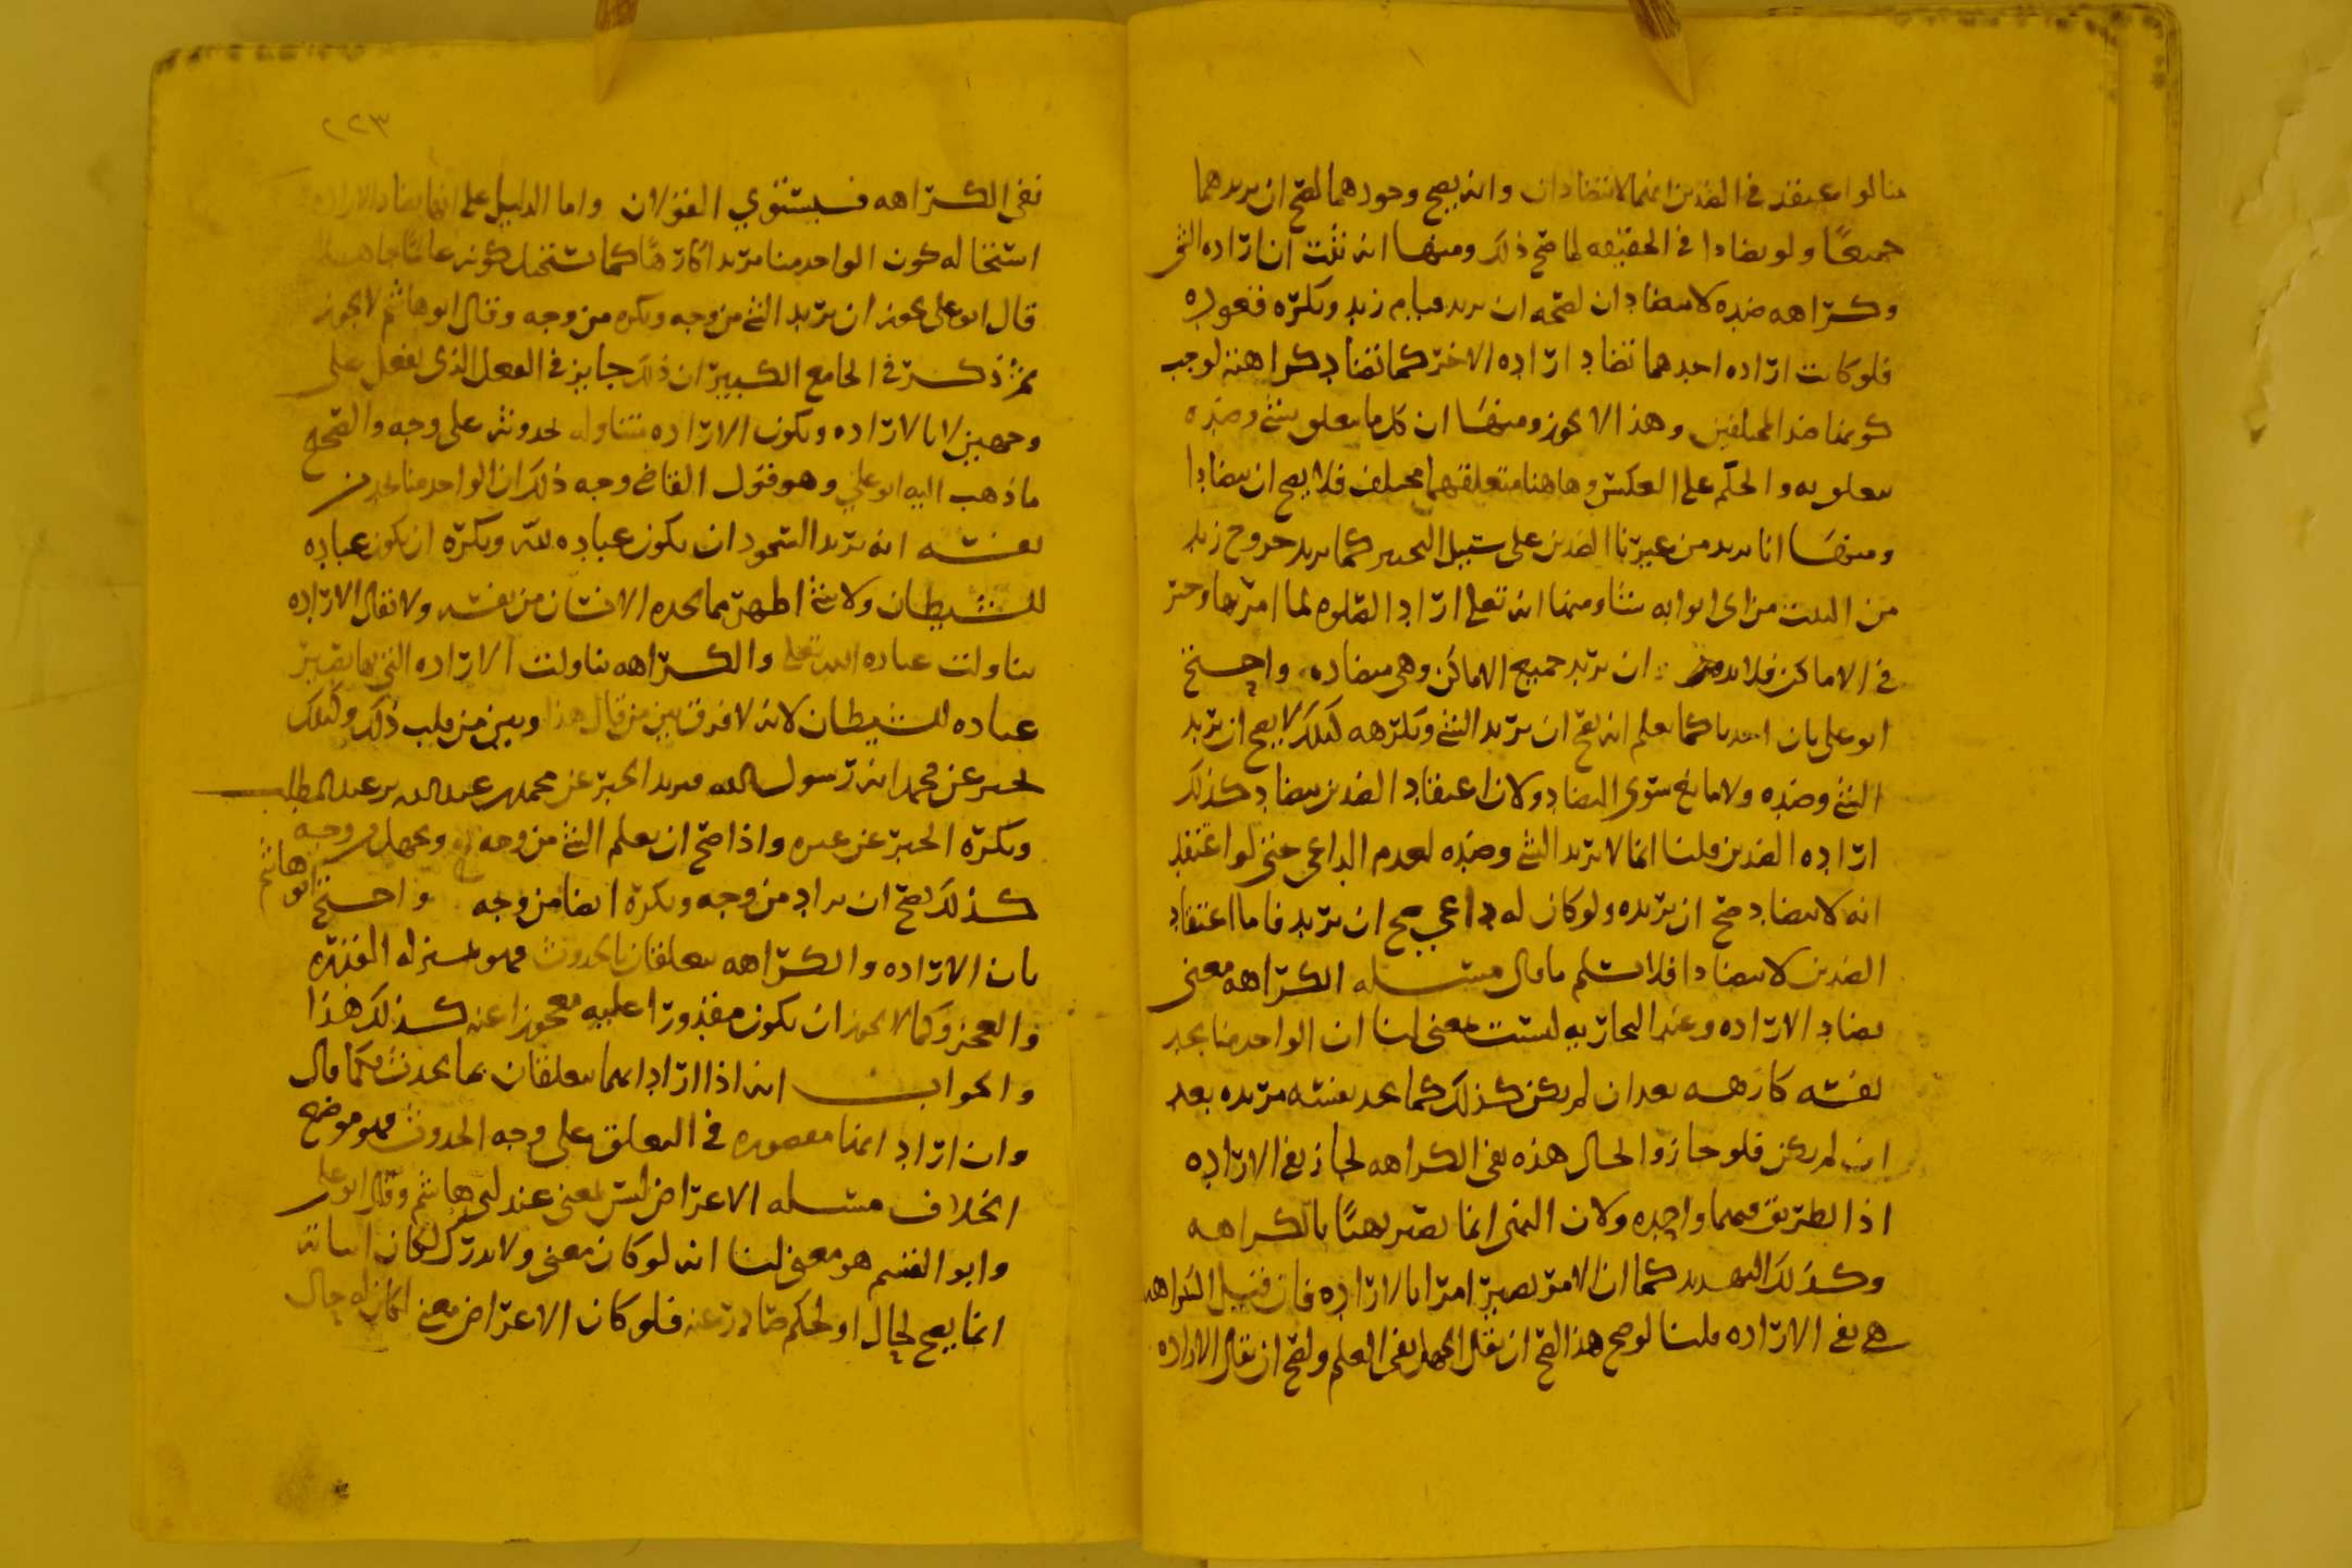 منا لو اعتقد في الضدين انهما لا يتضادان وانه يصح وجودهما لصح ان يريدهما
جميعًا ولو تضادا في الحقيقه لما صح ذلك ومنها انه ثبت ان اراده الشي
وكراهه ضده لا يتضادان لصحه ان يريد قيام زيد ويكره قعوده
فلو كانت اراده احدهما تضاد اراده الاخر كما تضاد كراهته لوجب
كونها ضد المختلفين وهذا لا يجوز ومنها ان كل ما يتعلق بشي وضده
يتعلق به والحكم على العكس وهاهنا متعلقهما مختلف فلا يصح ان يتضادا
ومنها انا نريد من غيرنا الضدين على سبيل التخيير كما نريد خروج زيد
من البيت من اي ابوابه شا ومنها انه تعلى اراد الصلوه لما امر بها وخير
في الاماكن فلا بد من ان يريد جميع الاماكن وهي متضاده واحتج
ابو علي بان احدنا كما يعلم انه يصح ان يريد الشي ويكرهه كذلك لا يصح ان يريد
الشي وضده ولا مانع سوى التضاد ولان اعتقاد الضدين يتضاد كذلك
اراده الضدين قلنا انما لا يريد الشي وضده لعدم الداعي حتى لو اعتقد
انه لا يتضاد صح ان يريده ولو كان له داعي صح ان يريد فاما اعتقاد
الضدين لا يتضادا فلا نسلم ما قال مسله الكراهه معنى
يضاد الاراده وعند النجاريه ليست بمعنى لنا ان الواحد منا يجد
نفسه كارهه بعد ان لم يكن كذلك كما يجد نفسه مريده بعد
ان لم يكن فلو جاز والحال هذه نفي الكراهه لجاز نفي الاراده
اذ الطريق فيهما واحده ولان النهي انما يصير نهيًا بالكراهه
وكذلك التهديد كما ان الامر يصير امرا بالاراده فان قيل الكراهه
هي نفي الاراده قلنا لو صح هذا لصح ان يقال الجهل نفي العلم ولصح ان يقال الاراده
٢٢٣
نفي الكراهه فيستوي القولان واما الدليل على انها تضاد الاراده
استحاله كون الواحد منا مريدا كارهًا كما تستحيل كونه عالمًا جاهلا
قال ابو علي يجوز ان يريد الشي من وجه ويكره من وجه وقال ابو هاشم لا يجوز
ثم ذكر في الجامع الكبير ان ذلك جايز في الفعل الذي يفعل على
وجهين لا بالاراده وتكون الاراده تتناول حدوثه على وجه والصحيح
ما ذهب اليه ابو علي وهو قول القاضي وجه ذلك ان الواحد منا يجد من
نفسه انه يريد السجود ان يكون عباده لله ويكره ان يكون عباده
للشيطان ولا شي اظهر مما يجده الانسان من نفسه ولا يقال الاراده
تناولت عباده الله تعلى والكراهه تناولت الاراده التي بها يصير
عباده للشيطان لانه لا فرق بين من قال هذا وبين من قلب ذلك وكذلك
يخبر عن محمد انه رسول الله فيريد الخبر عن محمد بن عبد الله بن عبد المطلب
ويكره الخبر عن غيره واذا صح ان يعلم الشي من وجه ويجهل من وجه
كذلك يصح ان يراد من وجه ويكره ايضا من وجه واحتج ابو هاشم
بان الاراده والكراهه يتعلقان بالحدوث فهو بمنزله القدره
والعجز وكما لا يجوز ان يكون مقدورا عليه معجوزا عنه كذلك هذا
والجواب انه اذا اراد انهما يتعلقان بما يحدث فكما قال
وان اراد انها مقصوره في التعلق على وجه الحدوث فهو موضع
الخلاف مسله الاعتراض ليس بمعنى عند ابي هاشم وقال ابو علي
وابو القسم هو معنى لنا انه لو كان معنى ولا يدرك لكان اثباته
انما يصح لحال او لحكم صادر عنه فلو كان الاعتراض معنى لكان له حال